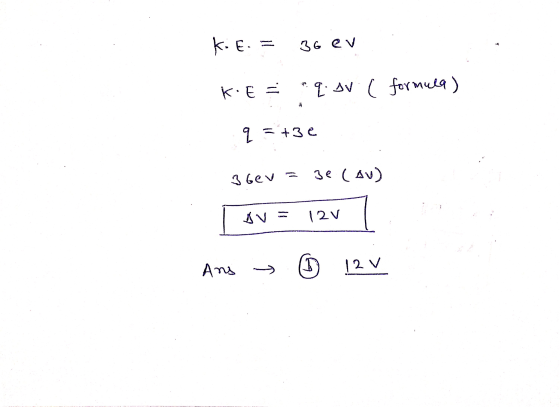 K.E. = 36 eV
K.E = q.ΔV ( formula )
q = +3e
36eV = 3e (ΔV)
ΔV = 12V
Ans → Ⓓ 12V